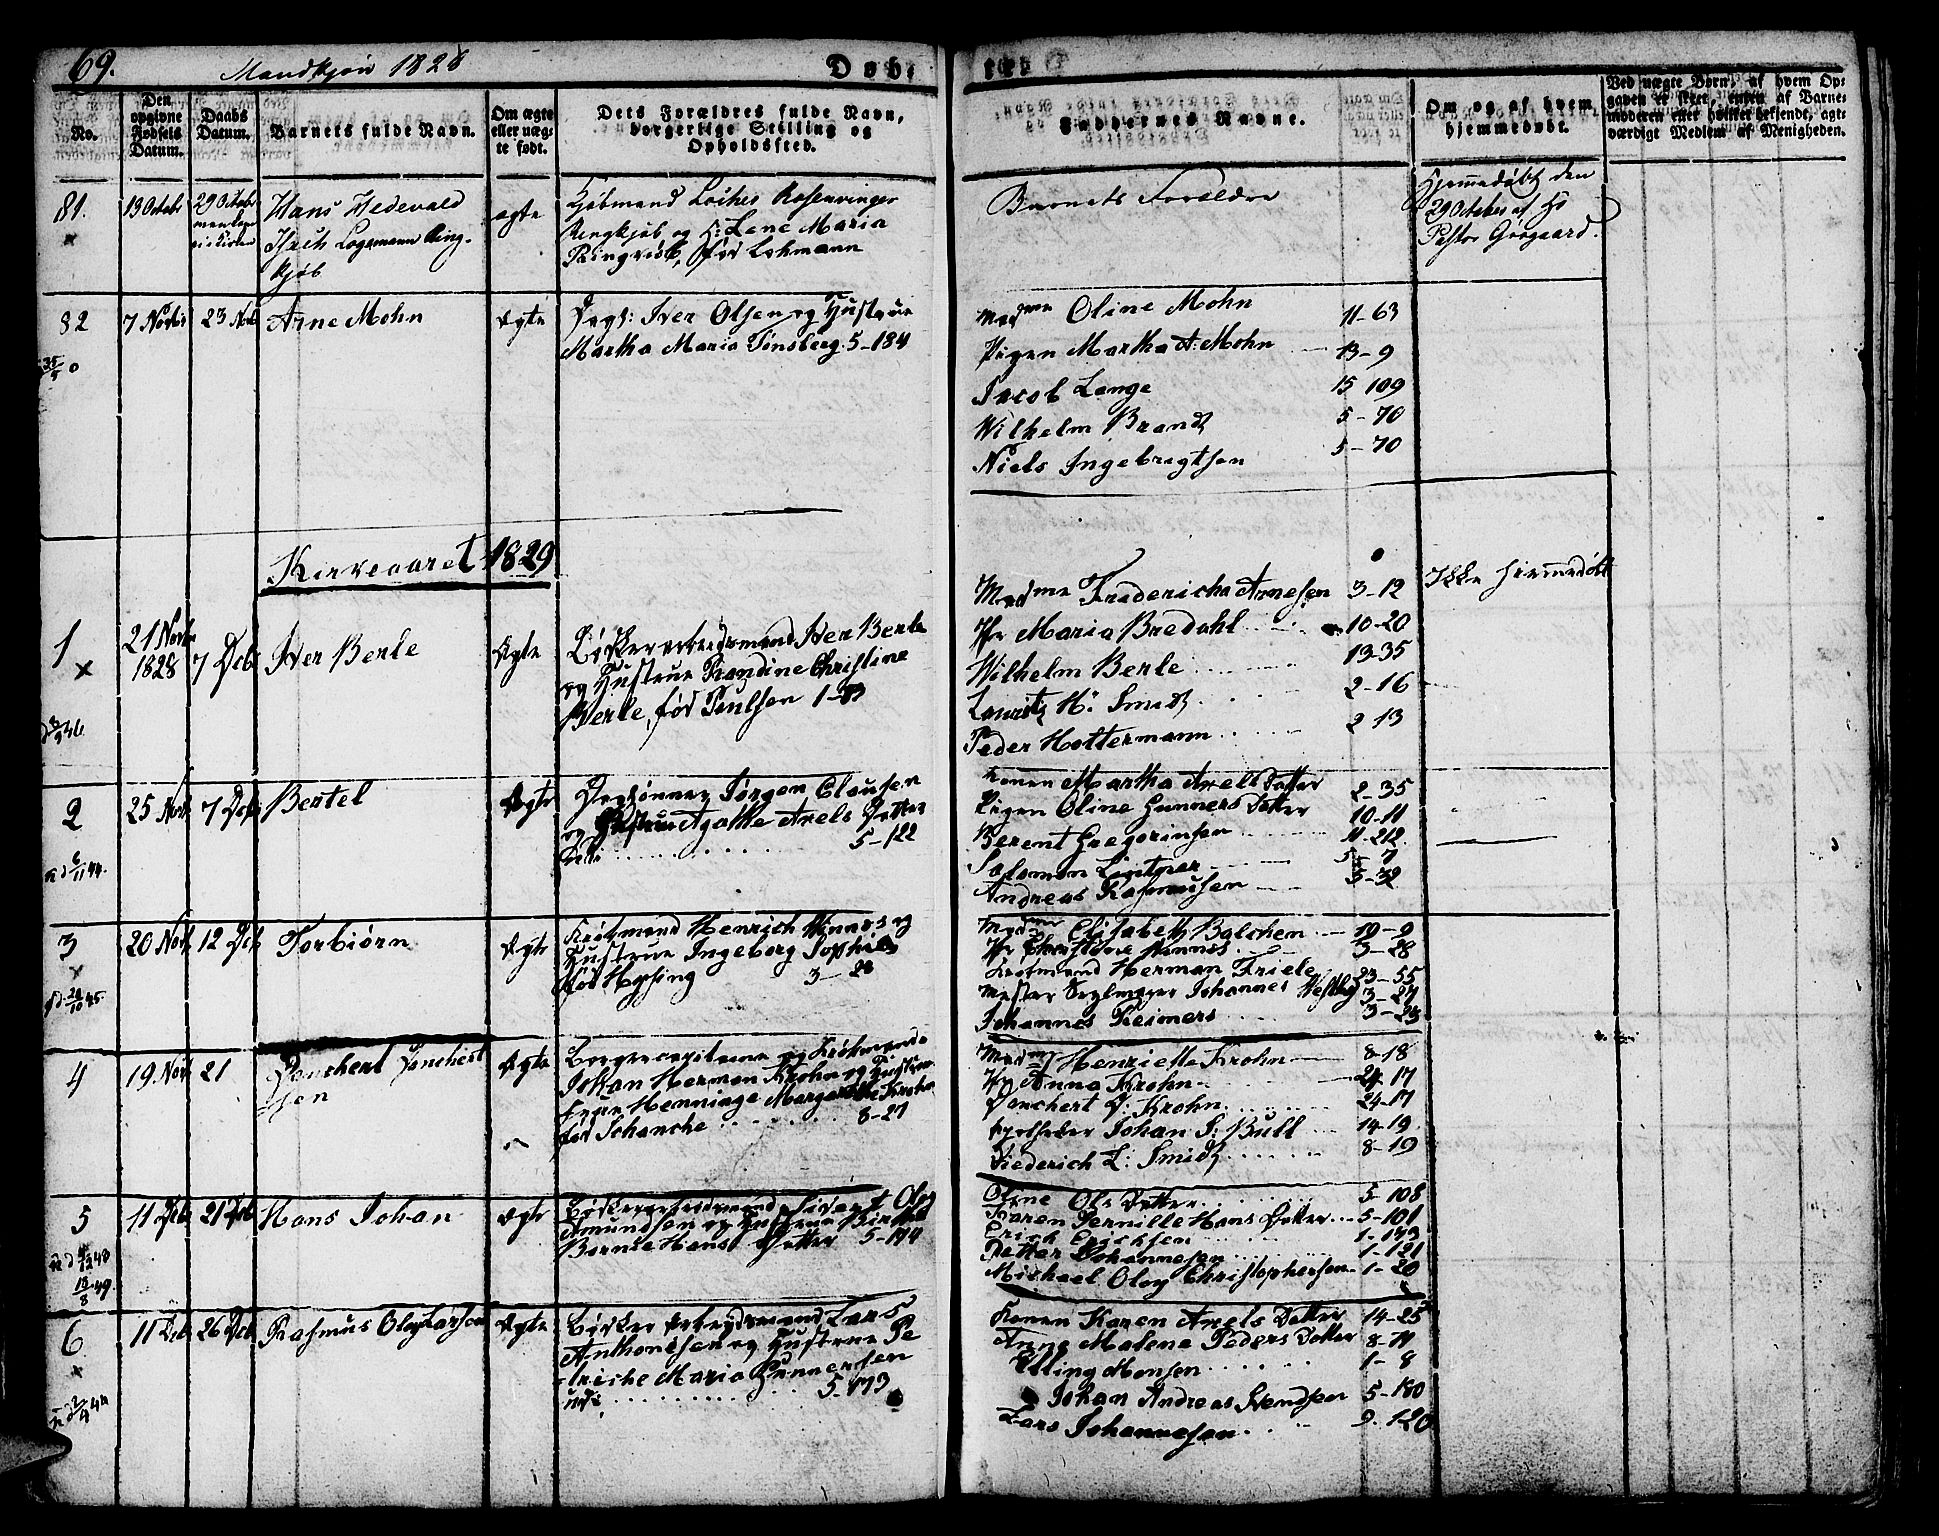 69. Mandkjøn 1828 Døbte
No.
Den opgivne Fødsels Datum.
Daabs Datum.
Barnets fulde Navn.
Om ægte eller uægte født.
Dets Forældres fulde Navn, borgerlige Stilling og Opholdssted.
Faddernes Navne.
Om og af hvem hjemmedøbt.
Ved uægte Børn, af hvem Opgaven er skeet, enten af Barnemoderen eller hvilket bekjendt, agtværdigt Medlem af Menigheden.
81. 13 Octobr 29 Octobr
Hans Hedevald
Logemann Ring-
kjøb
ægte
Kjøbmand
Ringkjøb og H: Lene Maria
Lohmann
Barnets Forældre
Hjemmedøbt den
29 October af Hr
Pastor Grøgaard.
82 7 Novbr 23 Nov
Arne Mohn
Ægte
Iver Olsen og Hustrue
Martha Maria Tønsberg. 5-184
Madme Oline Mohn 11-63
Pigen Martha A: Mohn 13-9
Jacob Lange 15 109
Wilhelm Brandt 5-70
Niels Ingebrigtsen 5-70
Kirkeaaret 1829
1 21 Novbr 1828 7 Decbr
Iver Berle
Ægte
Løskearbeidsmand Iver Berle
og Hustrue Randine Christine
Berle, fød Poulsen 1-83
Madme Fredericha Arnesen 3-12
Ikke hjemmedøbt
Jfr Maria Bredahl 10-20
Wilhelm Berle 13-35
Lauritz H: Smidt 2-16
Peder Hottermann 2-13
2 25 Nov 7 Dec
Bertel
Ægte
Jørgen Clausen
og Hustrue Agathe Axels Datter
5-122
Konen Martha Axels Datter 2-35
Pigen Oline Gunners Datter 10-11
Berent Gregoriusen 11-212
Salomon Lintner 5-7
Andreas Rasmussen 5-32
3 20 Nov 12 Dec
Torbiørn
Ægte
Kiøbmand Henrich Konnos og
Hustrue Ingeborg Sophie
fød Hysing 3-28
Madme Elisabeth Balchen 19-9
Jfr Christine 3-28
Kiøbmand Herman Friele 23-55
Mester Seylmager Johannes Westby 3-27
Johannes Reimers 3-23
4 19 Nov 21
Danchert Danchert
sen
Ægte
Borgercapitaine og Kiøbmand
Johan Herman Krohn og Hustrue
Henninge Margarethe Krohn
fød Johanche 8-27
Madme Henriette Krohn 8-18
Jfr Anna Krohn 24-17
Danchert D: Krohn 24-17
Apotheker Johan J: Bull 14-19
Diederich L: Smidt 8-19
5 11 Dec 21 Dec
Hans Johan
Ægte
Løskearbeidsmand Sivert Oluf
Amundsen og Hustrue Birthe
Bernie Hans Datter 5-174
Oline Ols Datter 5-108
Karen Pernille Hans Datter 5-101
Erich Erichsen 1-133
Petter Johannesen 1-121
Michael Oluf Christophersen 1-20
6 11 Dec 26 Dec
Rasmus Oluf Larsen
Ægte
Løsker Arbeydsmand Lars
Anthonisen og Hustrue Pe
triche Maria Gunnersen
5-173
Konen Karen Axels Datter 14-25
Anne Malene Peders Datter 8-71
Elling Monsen 1-8
Johan Andreas Svendsen 5-180
Lars Johannesen 9-120